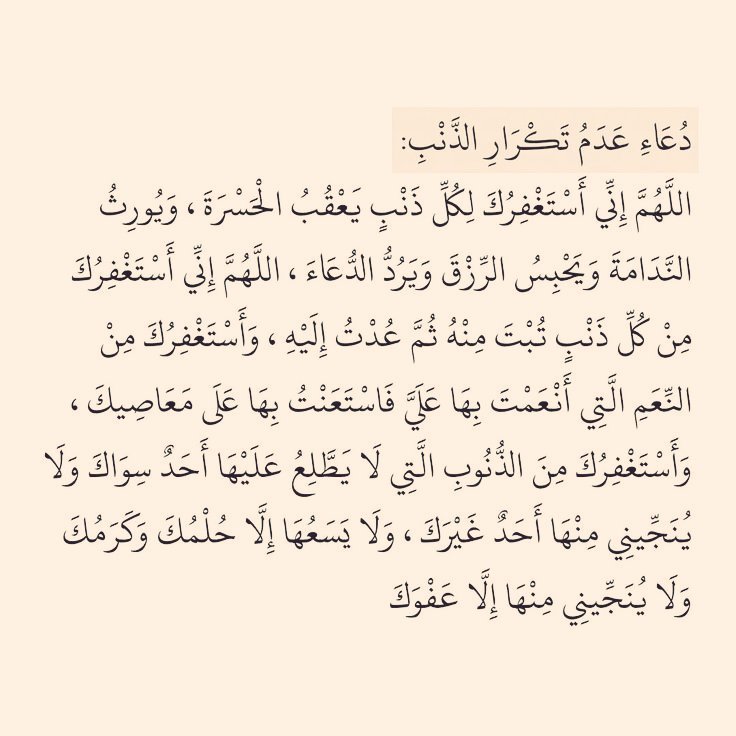 دُعَاءِ عَدَمُ تَكْرَارِ الذَّنْبِ:
اللَّهُمَّ إِنِّي أَسْتَغْفِرُكَ لِكُلِّ ذَنْبٍ يَعْقُبُ الْحَسْرَةَ ، وَيُورِثُ
النَّدَامَةَ وَيَحْبِسُ الرِّزْقَ وَيَرُدُّ الدُّعَاءَ ، اللَّهُمَّ إِنِّي أَسْتَغْفِرُكَ
مِنْ كُلِّ ذَنْبٍ تُبْتَ مِنْهُ ثُمَّ عُدْتُ إِلَيْهِ ، وَأَسْتَغْفِرُكَ مِنْ
النِّعَمِ الَّتِي أَنْعَمْتَ بِهَا عَلَيَّ فَاسْتَعَنْتُ بِهَا عَلَى مَعَاصِيكَ ،
وَأَسْتَغْفِرُكَ مِنَ الذُّنُوبِ الَّتِي لَا يَطَّلِعُ عَلَيْهَا أَحَدٌ سِوَاكَ وَلَا
يُنَجِّينِي مِنْهَا أَحَدٌ غَيْرَكَ ، وَلَا يَسَعُهَا إِلَّا حُلْمُكَ وَكَرَمُكَ
وَلَا يُنَجِّينِي مِنْهَا إِلَّا عَفْوَكَ